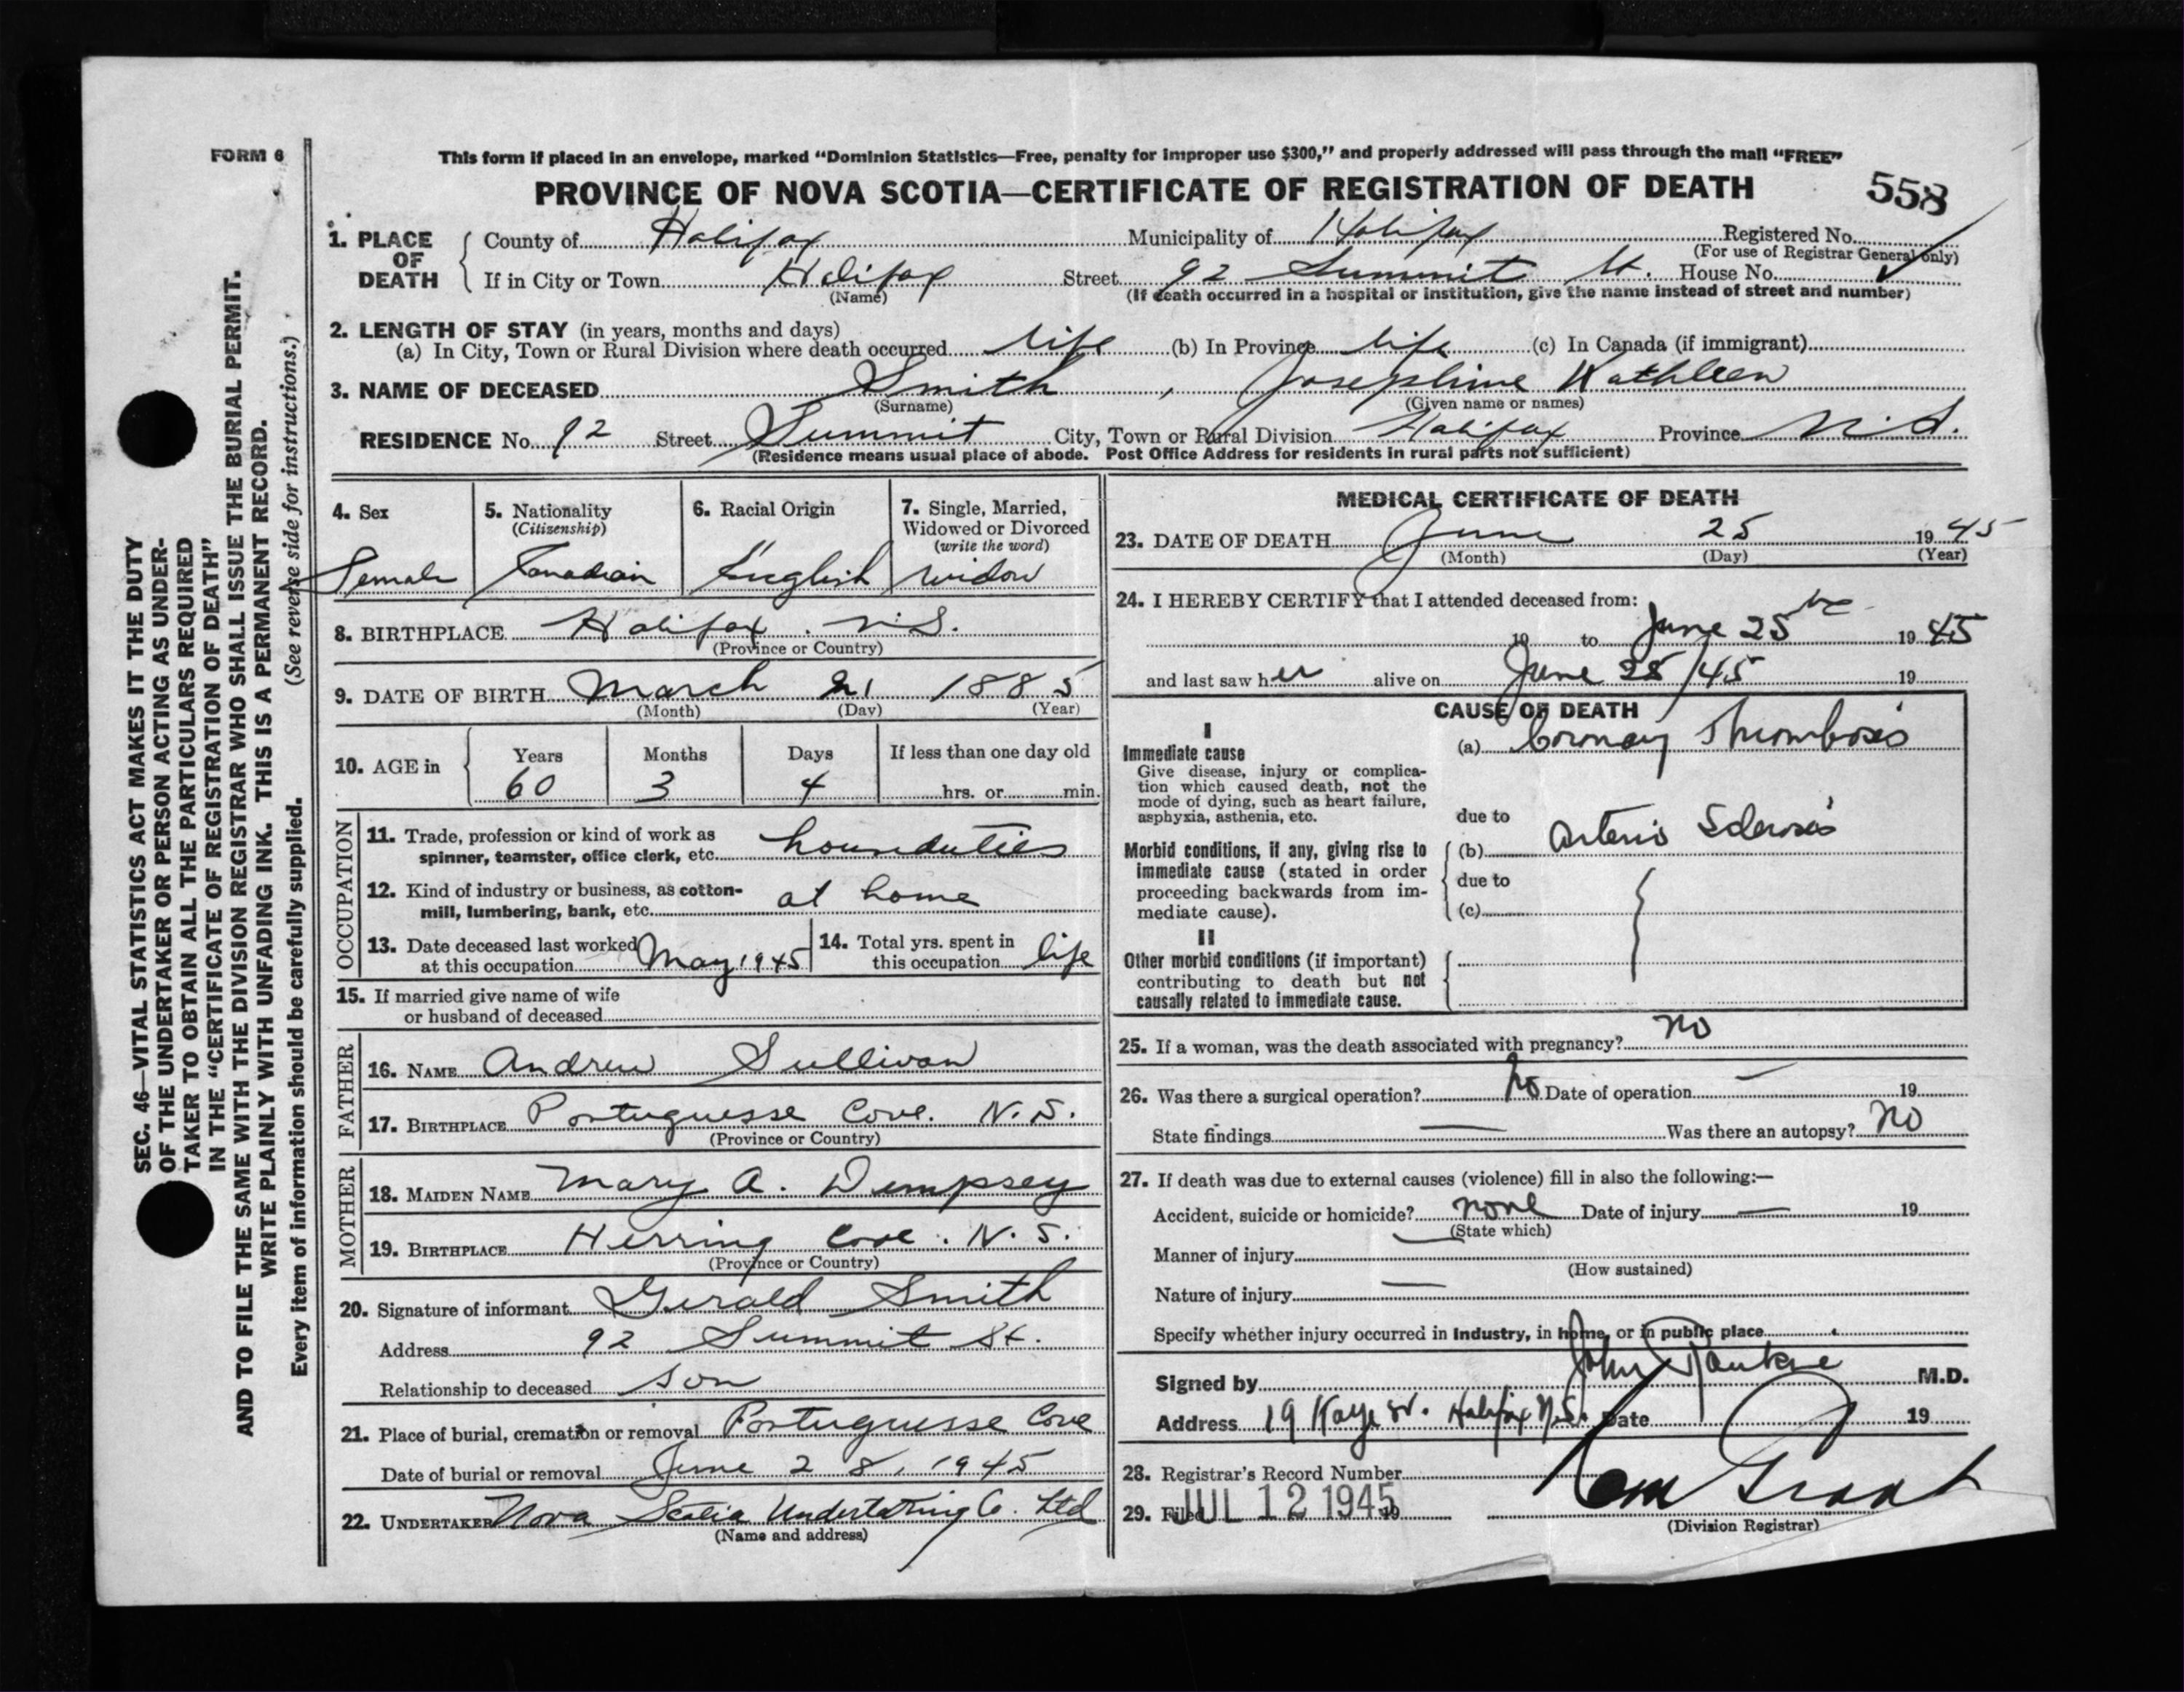 FORM 6
This form if placed in an envelope, marked “Dominion Statistics—Free, penalty for improper use $300,” and properly addressed will pass through the mail “FREE”
PROVINCE OF NOVA SCOTIA—CERTIFICATE OF REGISTRATION OF DEATH
558
1. PLACE OF DEATH
County of Halifax Municipality of Halifax Registered No.
(For use of Registrar General only)
If in City or Town Halifax Street 92 Summit St. House No.
(Name) (If death occurred in a hospital or institution, give the name instead of street and number)
2. LENGTH OF STAY (in years, months and days)
(a) In City, Town or Rural Division where death occurred life (b) In Province life (c) In Canada (if immigrant)
3. NAME OF DECEASED Smith, Josephine Kathleen
(Surname) (Given name or names)
RESIDENCE No. 92 Street Summit City, Town or Rural Division Halifax Province N.S.
(Residence means usual place of abode. Post Office Address for residents in rural parts not sufficient)
4. Sex
Female
5. Nationality
(Citizenship)
Canadian
6. Racial Origin
English
7. Single, Married,
Widowed or Divorced
(write the word)
widow
8. BIRTHPLACE Halifax. N.S.
(Province or Country)
9. DATE OF BIRTH March 21 1885
(Month) (Day) (Year)
10. AGE in
Years Months Days If less than one day old
60 3 4 hrs. or min.
OCCUPATION
11. Trade, profession or kind of work as
spinner, teamster, office clerk, etc. houseduties
12. Kind of industry or business, as cotton-
mill, lumbering, bank, etc. at home
13. Date deceased last worked
at this occupation May 1945
14. Total yrs. spent in
this occupation life
15. If married give name of wife
or husband of deceased
FATHER
16. NAME Andrew Sullivan
17. BIRTHPLACE Portuguesse Cove. N.S.
(Province or Country)
MOTHER
18. MAIDEN NAME Mary A. Dempsey
19. BIRTHPLACE Herring Cove. N.S.
(Province or Country)
20. Signature of informant Gerald Smith
Address 92 Summit St.
Relationship to deceased son
21. Place of burial, cremation or removal Portuguesse Cove
Date of burial or removal June 28, 1945
22. UNDERTAKER Nova Scotia Undertaking Co. Ltd
(Name and address)
MEDICAL CERTIFICATE OF DEATH
23. DATE OF DEATH June 25 1945
(Month) (Day) (Year)
24. I HEREBY CERTIFY that I attended deceased from:
19 to June 25th 1945
and last saw her alive on June 25/45 19
CAUSE OF DEATH
I
Immediate cause
Give disease, injury or complica-
tion which caused death, not the
mode of dying, such as heart failure,
asphyxia, asthenia, etc.
(a) Coronary Thrombosis
due to
Morbid conditions, if any, giving rise to
immediate cause (stated in order
proceeding backwards from im-
mediate cause).
(b) Arterio Sclerosis
due to
(c)
II
Other morbid conditions (if important)
contributing to death but not
causally related to immediate cause.
25. If a woman, was the death associated with pregnancy? No
26. Was there a surgical operation? No Date of operation — 19
State findings — Was there an autopsy? No
27. If death was due to external causes (violence) fill in also the following:—
Accident, suicide or homicide? none Date of injury — 19
(State which)
Manner of injury —
(How sustained)
Nature of injury —
Specify whether injury occurred in industry, in home, or in public place
Signed by John M.D.
Address 19 Kaye St. Halifax N.S. Date 19
28. Registrar's Record Number
29. Filed JUL 12 1945 19
Grant
(Division Registrar)
SEC. 46—VITAL STATISTICS ACT MAKES IT THE DUTY
OF THE UNDERTAKER OR PERSON ACTING AS UNDER-
TAKER TO OBTAIN ALL THE PARTICULARS REQUIRED
IN THE “CERTIFICATE OF REGISTRATION OF DEATH”
AND TO FILE THE SAME WITH THE DIVISION REGISTRAR WHO SHALL ISSUE THE BURIAL PERMIT.
WRITE PLAINLY WITH UNFADING INK. THIS IS A PERMANENT RECORD.
(See reverse side for instructions.)
Every item of information should be carefully supplied.